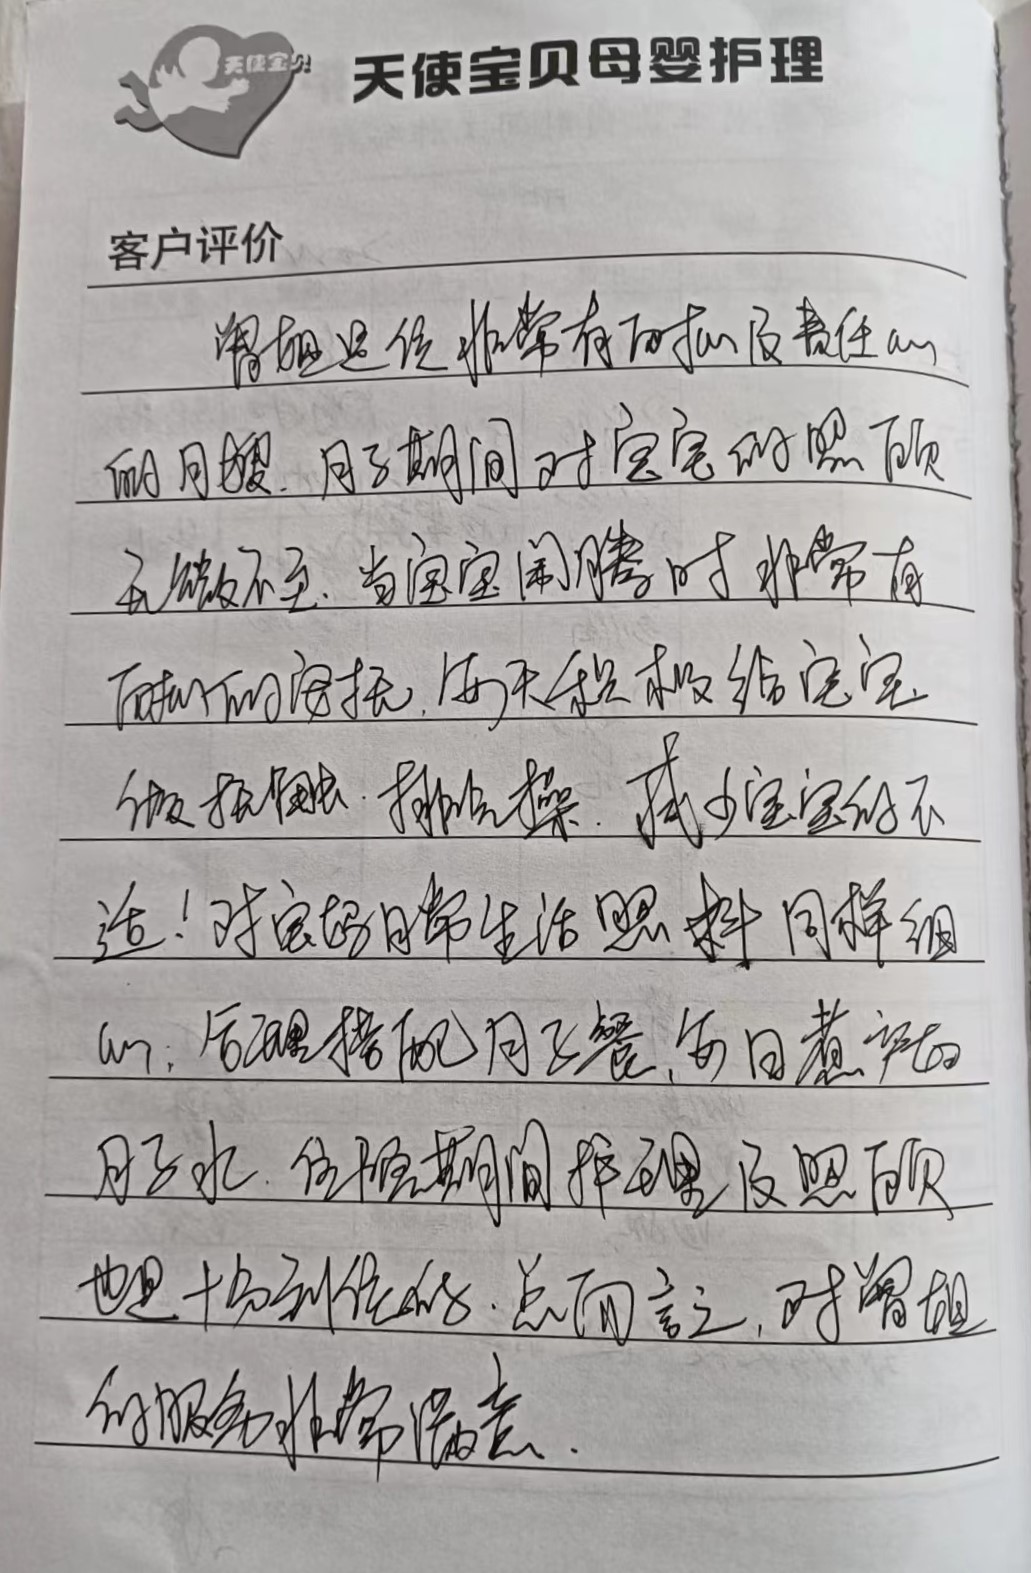 天使宝贝
天使宝贝母婴护理
客户评价
曾姐是位非常有耐心及责任心
的月嫂.月子期间对宝宝的照顾
无微不至.当宝宝闹腾时非常有
耐心的安抚,每天积极给宝宝
做抚触.排气操.减少宝宝的不
适!对宝妈日常生活照料同样细
心;合理搭配月子餐,每日煮
月子水.住院期间护理及照顾
也是十分到位的.总而言之,对曾姐
的服务非常满意.